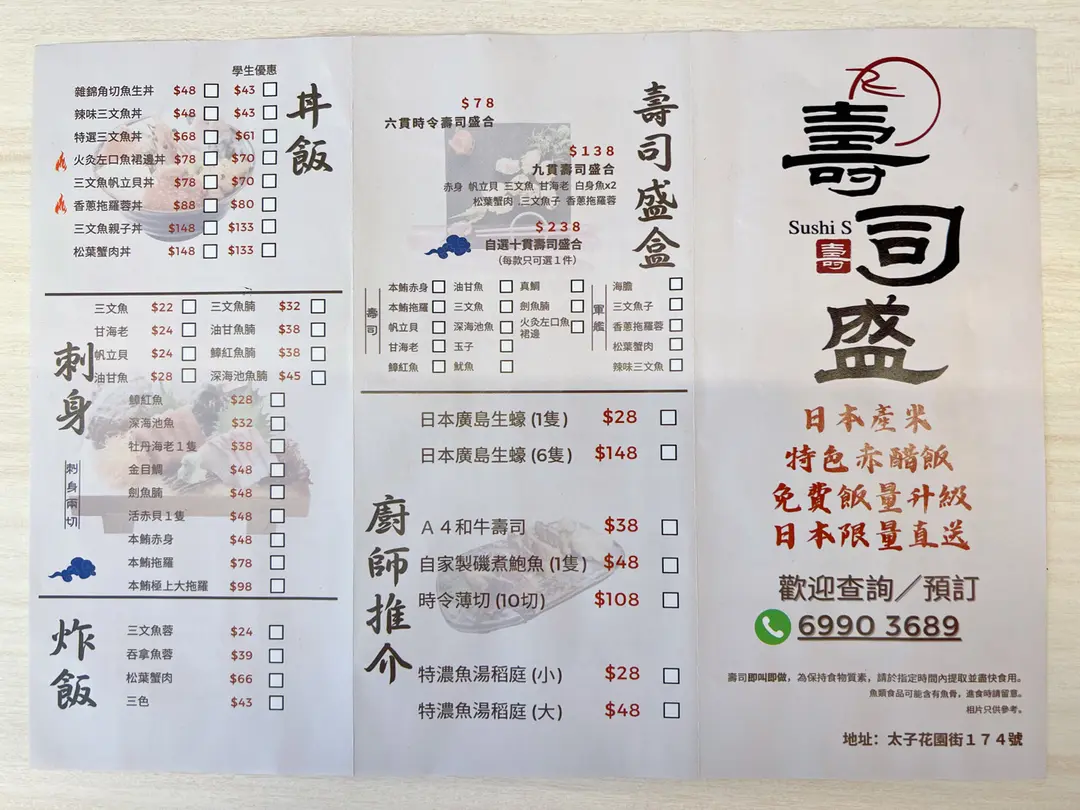 學生優惠
丼飯
雜錦角切魚生丼 $48 $43
辣味三文魚丼 $48 $43
特選三文魚丼 $68 $61
火灸左口魚裙邊丼 $78 $70
三文魚帆立貝丼 $78 $70
香蔥拖羅蓉丼 $88 $80
三文魚親子丼 $148 $133
松葉蟹肉丼 $148 $133
刺身
刺身兩切
三文魚 $22 三文魚腩 $32
甘海老 $24 油甘魚腩 $38
帆立貝 $24 鱆紅魚腩 $38
油甘魚 $28 深海池魚腩 $45
鱆紅魚 $28
深海池魚 $32
牡丹海老1隻 $38
金目鯛 $48
劍魚腩 $48
活赤貝1隻 $48
本鮪赤身 $48
本鮪拖羅 $78
本鮪極上大拖羅 $98
炸飯
三文魚蓉 $24
吞拿魚蓉 $39
松葉蟹肉 $66
三色 $43
壽司盛盒
$78
六貫時令壽司盛合
$138
九貫壽司盛合
赤身 帆立貝 三文魚 甘海老 白身魚x2
松葉蟹肉 三文魚子 香蔥拖羅蓉
$238
自選十貫壽司盛合
(每款只可選1件)
壽司
本鮪赤身 油甘魚 真鯛
本鮪拖羅 三文魚 劍魚腩
帆立貝 深海池魚 火灸左口魚裙邊
甘海老 玉子
鱆紅魚 魷魚
軍艦
海膽
三文魚子
香蔥拖羅蓉
松葉蟹肉
辣味三文魚
日本廣島生蠔 (1隻) $28
日本廣島生蠔 (6隻) $148
廚師推介
A4和牛壽司 $38
自家製磯煮鮑魚 (1隻) $48
時令薄切 (10切) $108
特濃魚湯稻庭 (小) $28
特濃魚湯稻庭 (大) $48
壽司盛
Sushi S
壽
日本產米
特色赤醋飯
免費飯量升級
日本限量直送
歡迎查詢／預訂
6990 3689
壽司即叫即做，為保持食物質素，請於指定時間內提取並盡快食用。
魚類食品可能含有魚骨，進食時請留意。
相片只供參考。
地址：太子花園街174號